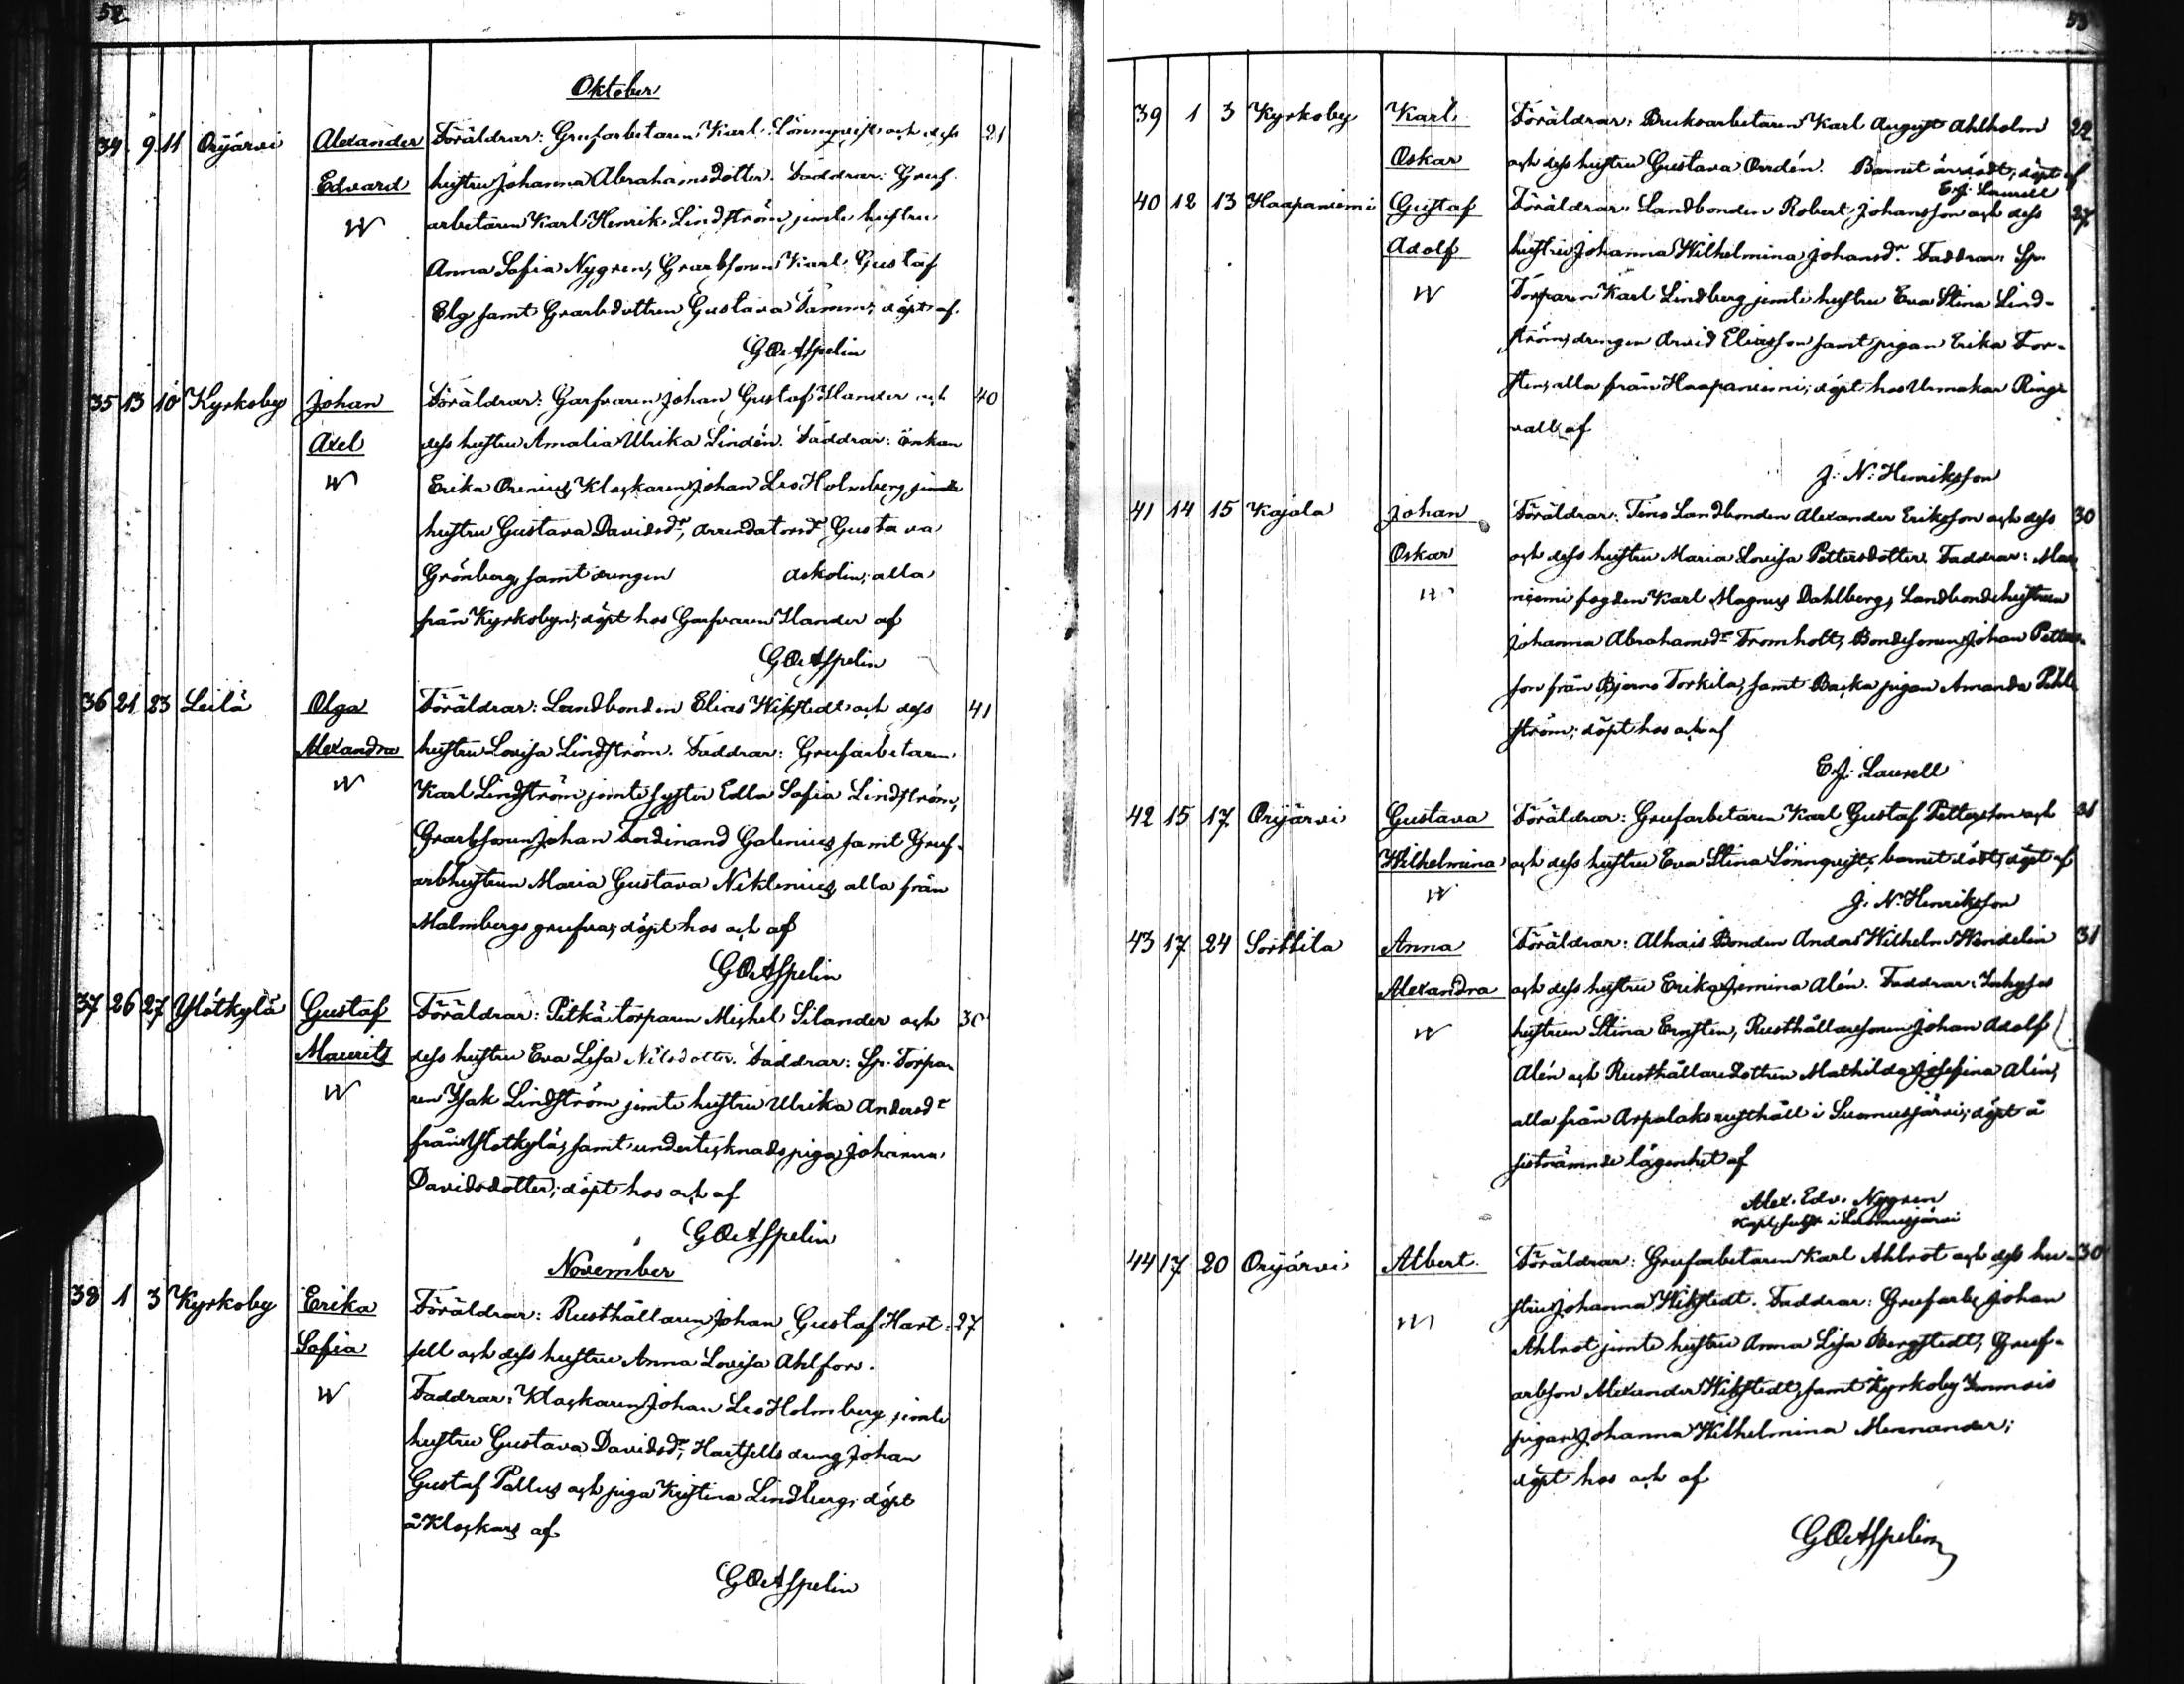 52
Oktober
34 9 11 Orijärvi Alexander Föräldrar: Grufarbetaren Karl Lönnqvist och dess 21
Edvard hustru Johanna Abrahamsdotter. Faddrar: Gruf-
W arbetaren Karl Henrik Lindström jemte hustru
Anna Sofia Nygren, Grarbsonen Karl Gustaf
Elg samt Grarbdottren Gustava Tamm; döpt af
G Oe Aspelin
35 13 16 Kyrkoby Johan Föräldrar: Garfvaren Johan Gustaf Ilander och 40
Axel dess hustru Amalia Ulrika Lindén. Faddrar: Enkan
W Erika Orenius, Klockaren Johan Leo Holmberg jemte
hustru Gustava Davidsdr, Arrendatorsdr Gustava
Grönberg, samt drengen Askolin; alla
från Kyrkobyn; döpt hos Garfvaren Ilander af
G Oe Aspelin
36 21 23 Leilä Olga Föräldrar: Landbonden Elias Wikstedt och dess 41
Alexandra hustru Lovisa Lindström. Faddrar: Grufarbetaren
W Karl Lindström jemte syster Edla Sofia Lindström,
Grarbsonen Johan Ferdinand Galenius, samt Gruf-
arbhustrun Maria Gustava Niklenius, alla från
Malmbergs grufva; döpt hos och af
G Oe Aspelin
37 26 27 Ylötkylä Gustaf Föräldrar: Pitkä torparen Michel Silander och 30
Maurits dess hustru Eva Lisa Nilsdotter. Faddrar: Sp. Torpa-
W ren Isak Lindström jemte hustru Ulrika Andersdr
från Ylötkylä, samt undertecknads piga Johanna
Davidsdotter; döpt hos och af
G Oe Aspelin
November
38 1 3 Kyrkoby Erika Föräldrar: Rusthållaren Johan Gustaf Hart- 27
Sofia sell och dess hustru Anna Lovisa Ahlfors.
W Faddrar: Klockaren Johan Leo Holmberg jemte
hustru Gustava Davidsdr, Hartsells dreng Johan
Gustaf Pallus och piga Kristina Lindberg; döpt
å Klockars af
G Oe Aspelin
53
39 1 3 Kyrkoby Karl Föräldrar: Bruksarbetaren Karl August Ahlholm 22
Oskar och dess hustru Gustava Ordén. Barnet nödöpt af
E. J. Laurell
40 12 13 Haapaniemi Gustaf Föräldrar: Landbonden Robert Johansson och dess 27
Adolf hustru Johanna Wilhelmina Johansdr. Faddrar: Sp.
W Torparen Karl Lindberg jemte hustru Eva Stina Lind-
ström, drengen Arvid Eliasson samt pigan Erika For-
sten, alla från Haapaniemi; döpt hos Urmakar Ring-
vall af
J. N. Henriksson
41 14 15 Kajala Johan Föräldrar: Teno Landbonden Alexander Eriksson och dess 30
Oskar och dess hustru Maria Lovisa Pettersdotter. Faddrar:
W niemi fogden Karl Magnus Dahlberg, Landbondehustrun
Johanna Abrahamsdr Fromholt, Bondesonen Johan Petters-
son från Bjerno Torkila, samt Backa pigan Amanda
ström; döpt hos och af
E. J. Laurell
42 15 17 Orijärvi Gustava Föräldrar: Grufarbetaren Karl Gustaf Pettersson och 31
Wilhelmina och dess hustru Eva Stina Lönnqvist; barnet dödt, döpt af
W J. N. Henriksson
43 17 24 Sorttila Anna Föräldrar: Alhais Bonden Anders Wilhelm Wendelin 31
Alexandra och dess hustru Erika Jemina Alén. Faddrar: Inhyses
W hustrun Stina Ernstén, Rusthållaresonen Johan Adolf
Alén och Rusthållaredottren Mathilda Josefina Alén,
alla från Arpalaks rusthåll i Suomusjärvi; döpt å
sistnämnde lägenhet af
Alex. Edv. Nygren
Kapl. i Suomusjärvi
44 17 20 Orijärvi Albert Föräldrar: Grufarbetaren Karl Ahlrot och dess hu- 30
W stru Johanna Wikstedt. Faddrar: Grufarb. Johan
Ahlrot jemte hustru Anna Lisa Bergstedt, Gruf-
arbson Alexander Wikstedt, samt Kyrkoby Immois
pigan Johanna Wilhelmina Mennander;
döpt hos och af
G Oe Aspelin